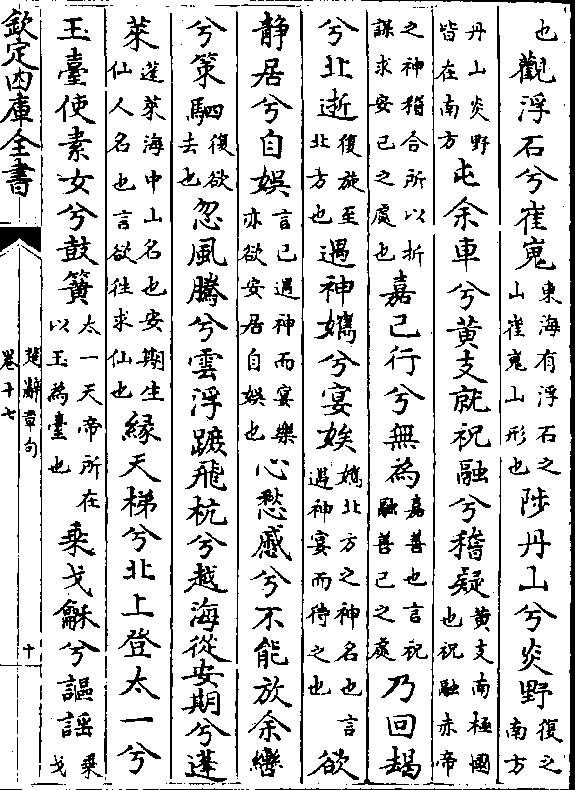 也觀浮石兮崔嵬東海有浮石之山崔嵬山形也陟丹山兮炎野復之南方
丹山炎野皆在南方屯余車兮黃支就祝融兮稽疑黃支南極國也祝融赤帝
之神稽合所以折謀求安己之處也嘉己行兮無為嘉善也言祝融善己之處乃回朅
兮北逝復旋至北方也遇神孈兮宴娭孈北方之神名也言遇神宴而待之也欲
靜居兮自娛言己遇神而宴樂亦欲安居自娛也心愁慼兮不能放余轡
兮策駟復欲去也忽風騰兮雲浮蹠飛杭兮越海從安期兮蓬
萊蓬萊海中山名也安期生仙人名也言欲往求仙也緣天梯兮北上登太一兮
玉臺使素女兮鼓簧太一天帝所在以玉為臺也乘戈龢兮謳謠乘戈
欽定四庫全書
楚辭章句
卷十七
十